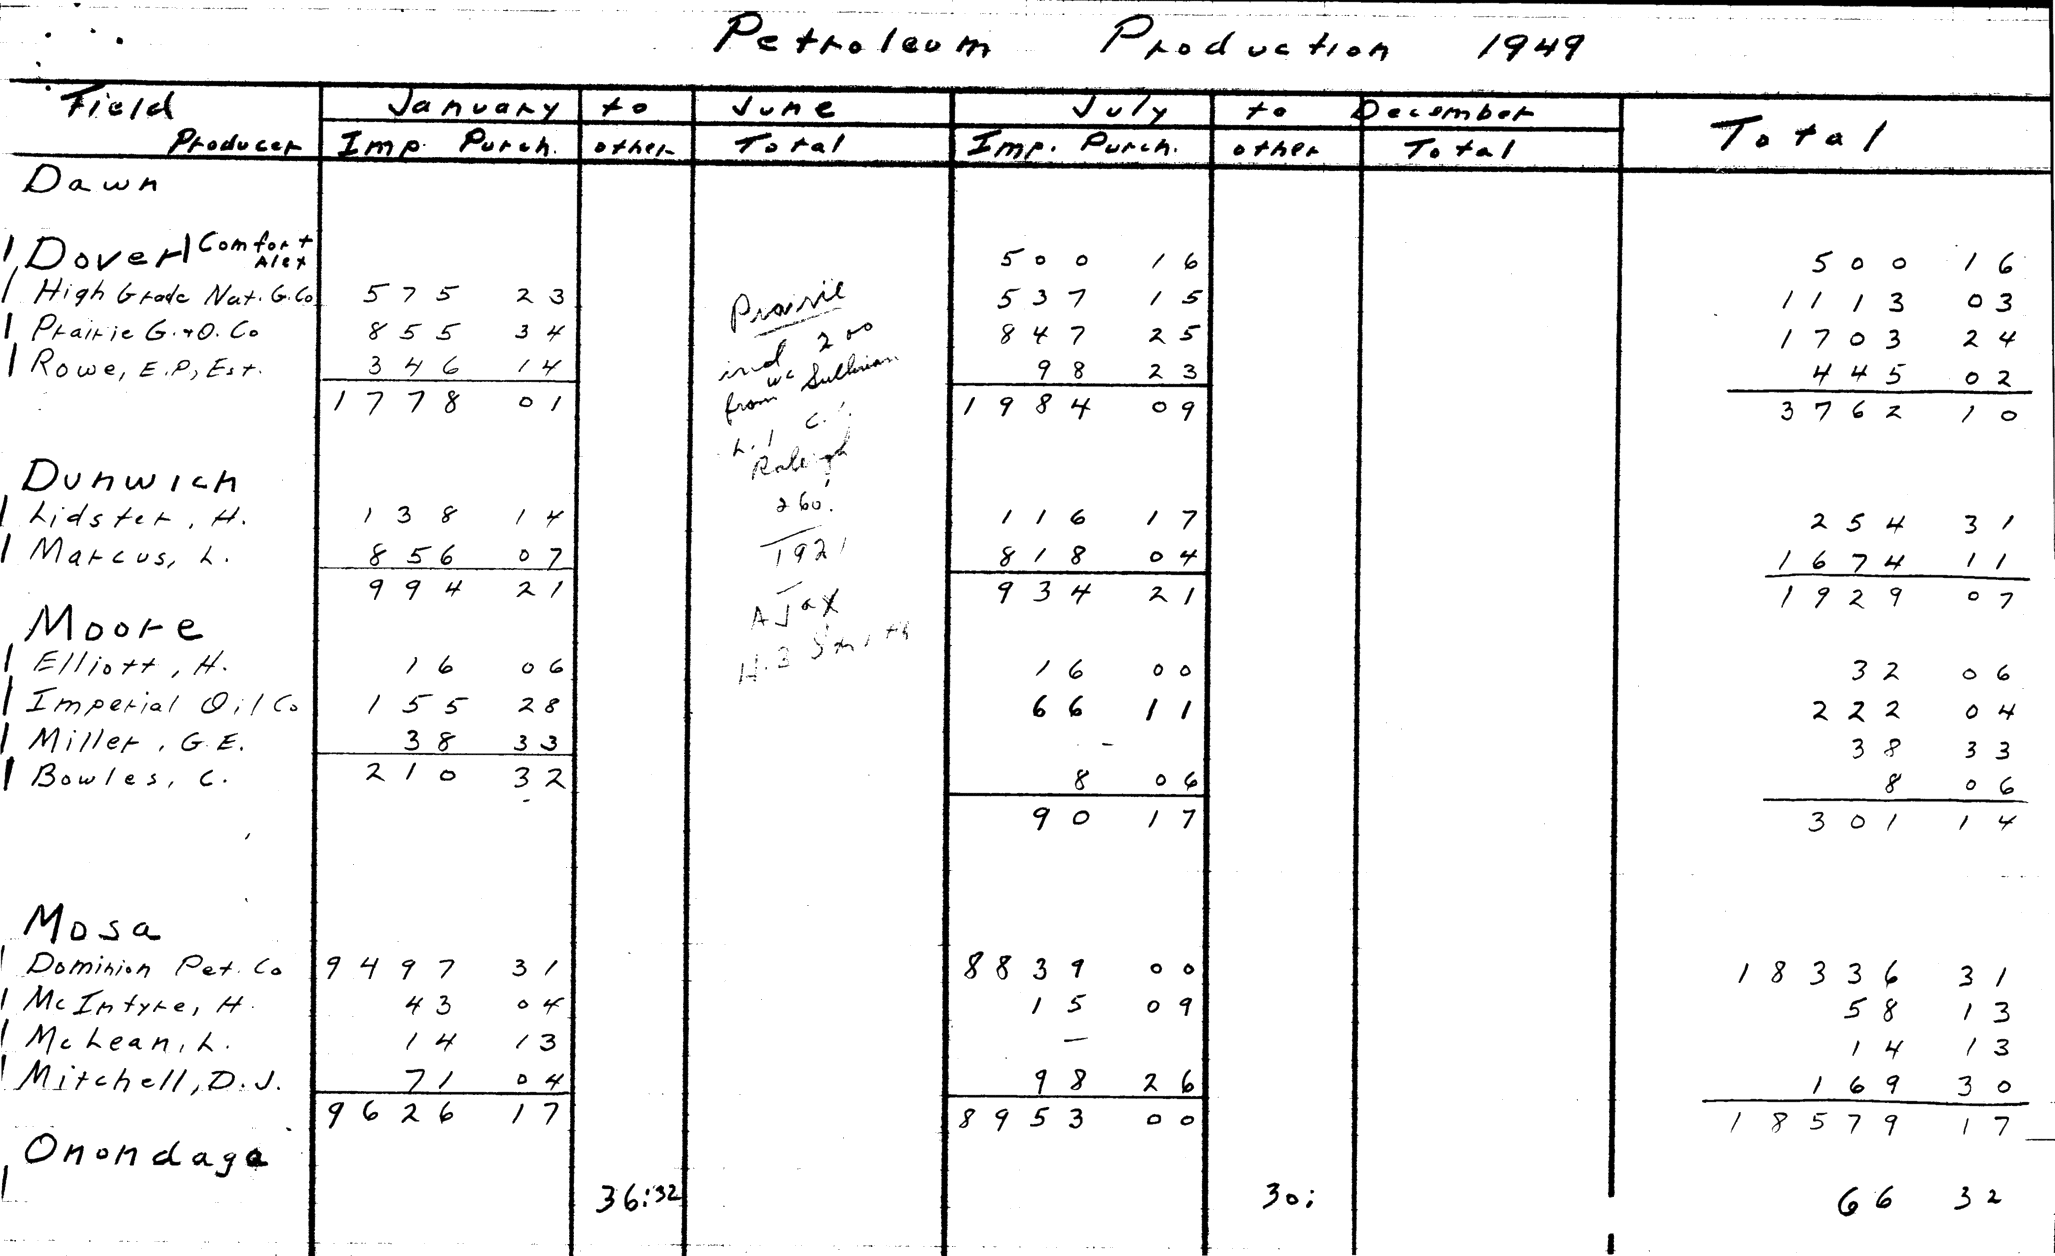 Petroleum Production 1949
Field January to June July to December Total
Producer Imp. Purch. other Total Imp. Purch. other Total
Dawn
Dover Comfort Alex 500 16 500 16
High Grade Nat. G. Co 575 23 537 15 1113 03
Prairie G. & O. Co 855 34 847 25 1703 24
Rowe, E.P, Est. 346 14 98 23 445 02
1778 01 1984 09 3762 10
Prairie
incl 200
wc Sullivan
from
L.1 C.
Raleigh
260'
1921
AJax
H.B Smith
Dunwich
Lidster, H. 138 14 116 17 254 31
Marcus, L. 856 07 818 04 1674 11
994 21 934 21 1929 07
Moore
Elliott, H. 16 06 16 00 32 06
Imperial Oil Co 155 28 66 11 222 04
Miller, G.E. 38 33 - 38 33
Bowles, C. 8 06 8 06
210 32 90 17 301 14
Mosa
Dominion Pet. Co 9497 31 8839 00 18336 31
McIntyre, H. 43 04 15 09 58 13
McLean, L. 14 13 — 14 13
Mitchell, D.J. 71 04 98 26 169 30
9626 17 8953 00 18579 17
Onondaga
36:32 30: 66 32